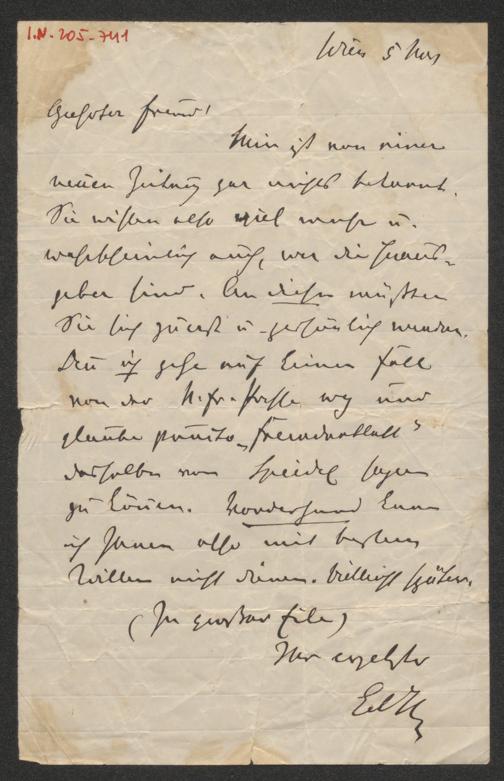 I.N. 205-741
Wien 5 Nov
Geehrter Freund!
Mir ist von einer
neuen Zeitung gar nichts bekannt.
Sie wissen also viel mehr u.
wahrscheinlich auch, wer die Heraus-
geber sind. An diese müßten
Sie sich zuerst u. persönlich wenden.
Denn ich gehe auf keinen Fall
von der N. fr. Presse weg und
glaube punkto „Fremdenblatt"
dasselbe von Speidel sagen
zu können. Vorderhand kann
ich Ihnen also mit bestem
Willen nicht dienen. Vielleicht später.
(In großer Eile)
Ihr ergebster
Ed H